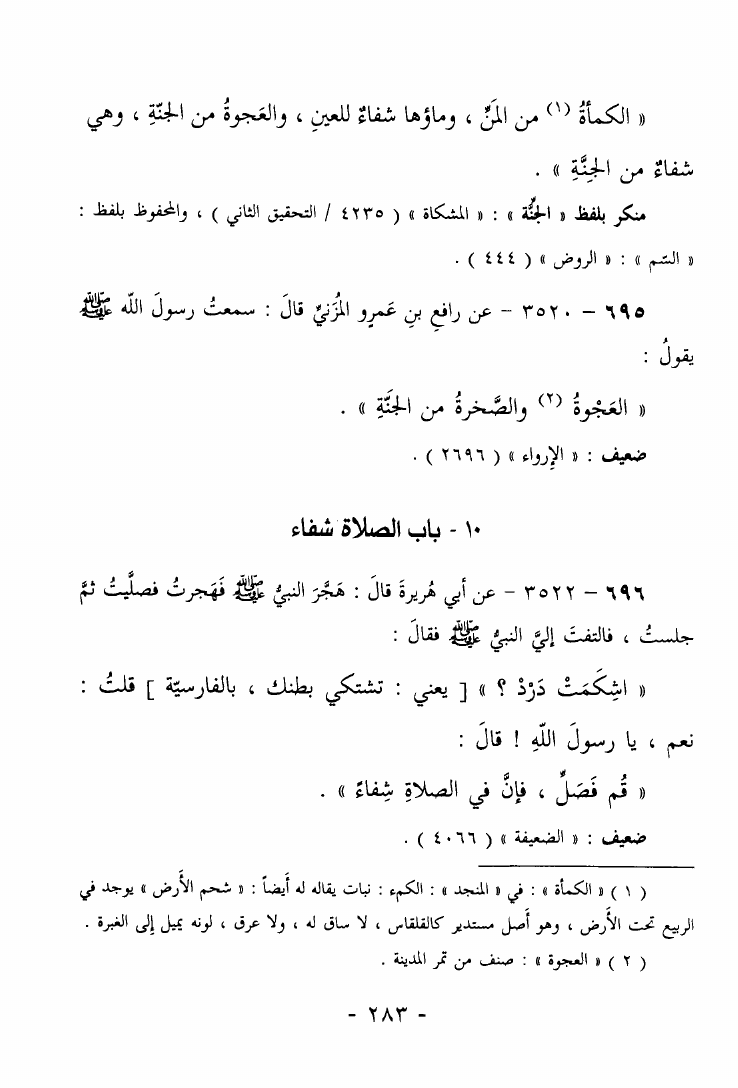 « الكمأةُ (١) من المَنِّ ، وماؤها شفاءٌ للعينِ ، والعَجوةُ من الجنّةِ ، وهي
شفاءٌ من الجِنَّةِ » .
منكر بلفظ « الجنَّة » : « المشكاة » ( ٤٢٣٥ / التحقيق الثاني ) ، والمحفوظ بلفظ :
« السّم » : « الروض » ( ٤٤٤ ) .
٦٩٥ – ٣٥٢٠ – عن رافعِ بنِ عَمرٍو المُزَنيِّ قالَ : سمعتُ رسولَ اللّه ﷺ
يقولُ :
« العَجْوةُ (٢) والصَّخرةُ من الجَنَّةِ » .
ضعيف : « الإرواء » ( ٢٦٩٦ ) .
١٠ - باب الصلاة شفاء
٦٩٦ – ٣٥٢٢ – عن أبي هُريرةَ قالَ : هَجَّرَ النبيُّ ﷺ فَهَجرتُ فصلَّيتُ ثمَّ
جلستُ ، فالتفتَ إليَّ النبيُّ ﷺ فقالَ :
« اشِكَمَتْ دَرَدْ ؟ » [ يعني : تشتكي بطنك ، بالفارسيّة ] قلتُ :
نعم ، يا رسولَ اللّهِ ! قالَ :
« قُم فَصَلِّ ، فإنَّ في الصلاةِ شِفاءً » .
ضعيف : « الضعيفة » ( ٤٠٦٦ ) .
( ١ ) « الكمأة » : في « المنجد » : الكمء : نبات يقاله له أيضاً : « شحم الأرض » يوجد في
الربيع تحت الأرض ، وهو أصل مستدير كالقلقاس ، لا ساق له ، ولا عرق ، لونه يميل إلى الغبرة .
( ٢ ) « العجوة » : صنف من تمر المدينة .
- ٢٨٣ -